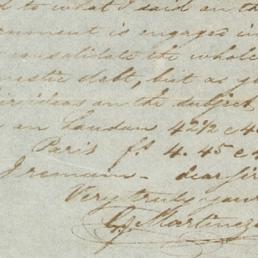 to what I said on th
ernment is engaged in
consolidate the whole
mestic debt, but as yo
ideas on the subject
on London 42½ c 4
Paris f. 4.45 c
I remain - dear Sir
Very truly your
Martinez